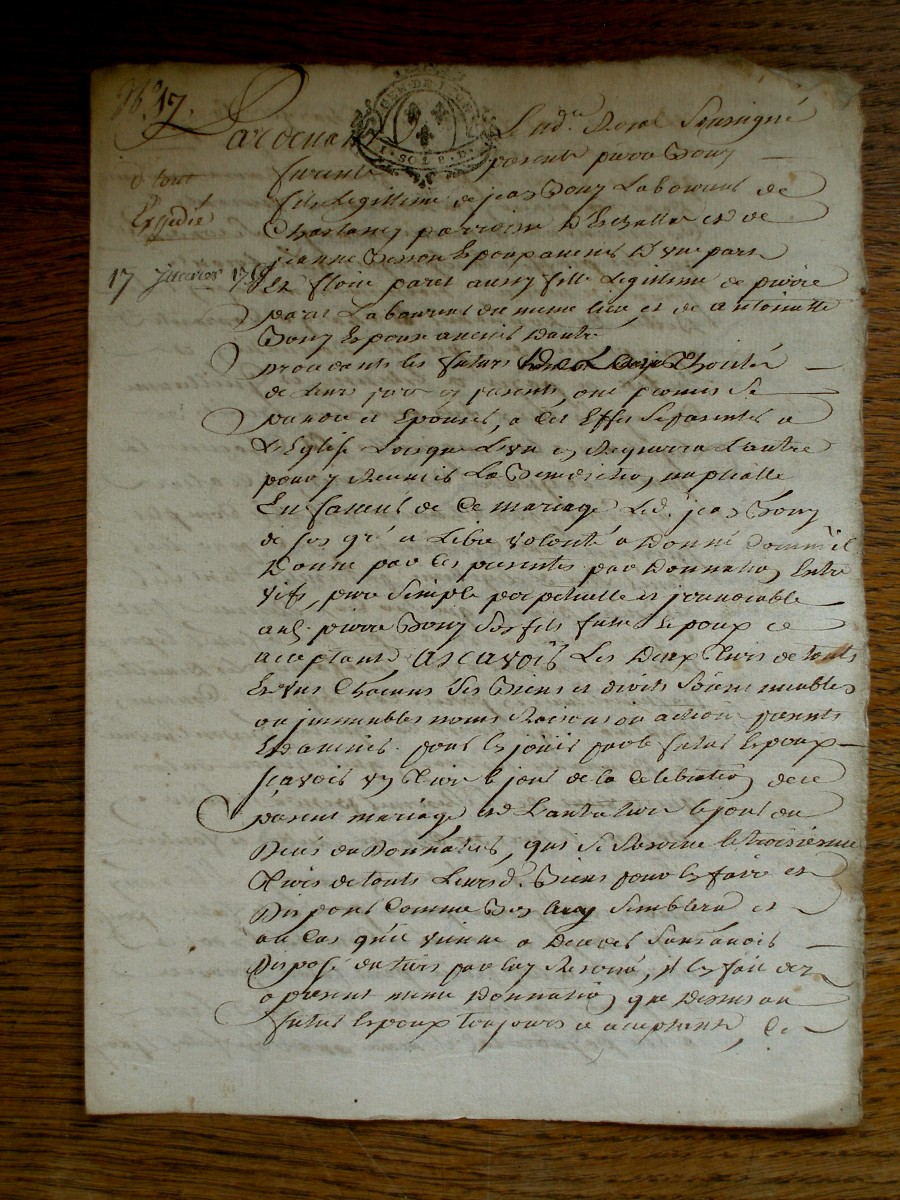 N° 17.
Pardevant le nore Royal Soussigné
GEN. DE LION
1. SOL 8. D.
furent presents pierre Bony
fils Legitime de jean Bony Laboureur de
parroisse D'Echallas et de
jeanne Besson Epoux avenir D'une part
Et fleurie paret aussy fille Legitime de pierre
paret Laboureur du meme lieu et de antoinette
Bony Epouse avenir Dautre
d tout
Expedié
17 janvier
procedants les futurs de L'authorité
de leurs peres et parents, ont promis se
prendre et Epouser, a Cet Effet se presenter a
L'Eglise Lorsque L'un en Requerra L'autre
pour y Recevoir La Benediction nuptialle
En faveur de Ce mariage Led. jean Bony
de son gré a Libre volonté a Donné Comme il
Donne par Ces presentes par Donnation Entre
vifs, pure simple perpetuelle et jrrevocable
aud. pierre Bony Son fils futur Epoux ce
acceptant ascavoir Les Deux tiers de touts
Et uns Chacuns Ses Biens et droits Soient meubles
ou jmmeubles noms Raisons ou actions presents
Et avenirs pour En jouir par le futur Epoux
scavoir un tiers le jour de la Celebration de ce
present mariage et L'autre tiers le jour du
Deces du Donnateur, qui se Reserve le troisieme
tiers de touts Leursd. Biens pour En faire et
Disposer Comme Bon luy Semblera et
au Cas qu'il vienne a Deceder Sans avoir
Disposé du tiers par luy Reservé, il En fait dez
a present meme Donnation que Dessus au
futur Epoux toujours ce acceptant, Ce